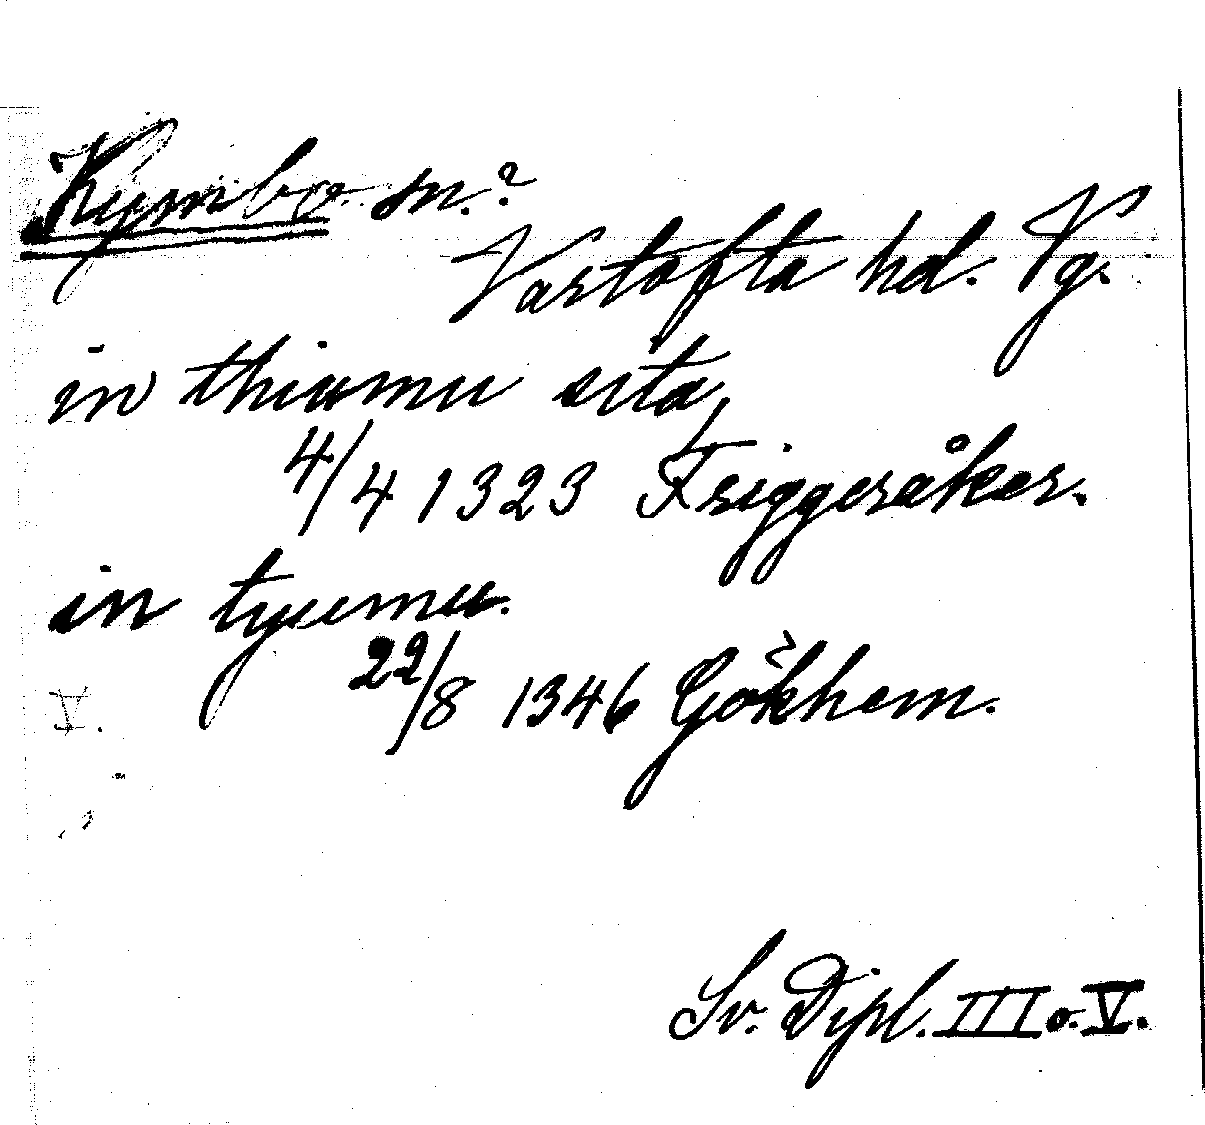 Kymbo sn.?
Vartofta hd. Vg.
in thiumu sita,
4/4 1323 Friggeråker.
in tyumu.
22/8 1346 Gökhem.
V.
Sv. Dipl. III o. V.